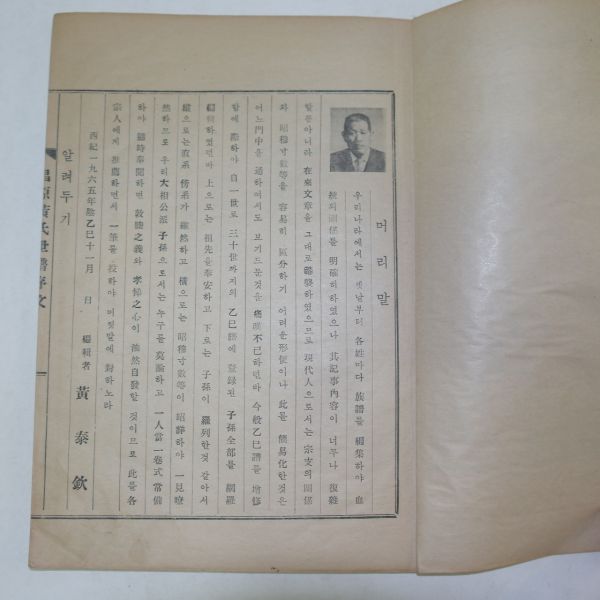 머리말
우리나라에서는 옛날부터 各姓마다 族譜를 編集하야 血
統의 關係를 明確히하였으나 其記事內容이 너무나 復雜
할뿐아니라 在來文章을 그대로 踏襲하였으므로 現代人으로서는 宗支의 關係
와 昭穆寸數等을 容易히 區分하기 어려운形便이나 此를 簡易化한것은
어느門中을 通하여서도 보기드문것을 痛嘆不已하면바 今般乙巳譜를 增修
할에 際하야 自一世로 三十世까지의 乙巳譜에 登録된 子孫全部를 網羅
編輯하였던바 上으로는 祖先을奉安하고 下로는 子孫이 羅列한것 같아서
縱으로는直系 傍系가 確然하고 橫으로는 昭穆寸數等이 昭詳하야 一見瞭
然하므로 우리大相公派 子孫으로서는 누구를 莫論하고 一人當一卷式常備
하야 隨時奉閱하면 敦睦之義와 孝悌之心이 油然自發할 것이므로 此를各
宗人에게 推薦하면서 一筆을 投하야 머릿말에 對하노라
西紀一九六五年陰乙巳十一月 日
編輯者 黃泰欽
알려두기
昌原黃氏世譜序文